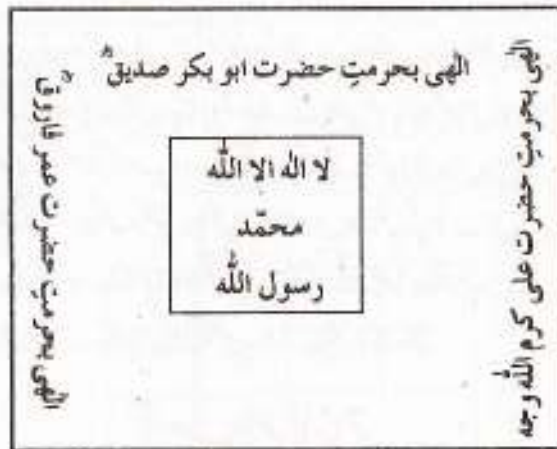 الٰہی بحرمتِ حضرت ابو بکر صدیقؓ
الٰہی بحرمتِ حضرت علی کرم اللہ وجہ
لا الہ الا اللہ
محمّد
رسول اللہ
الٰہی بحرمتِ حضرت عمر فاروقؓ